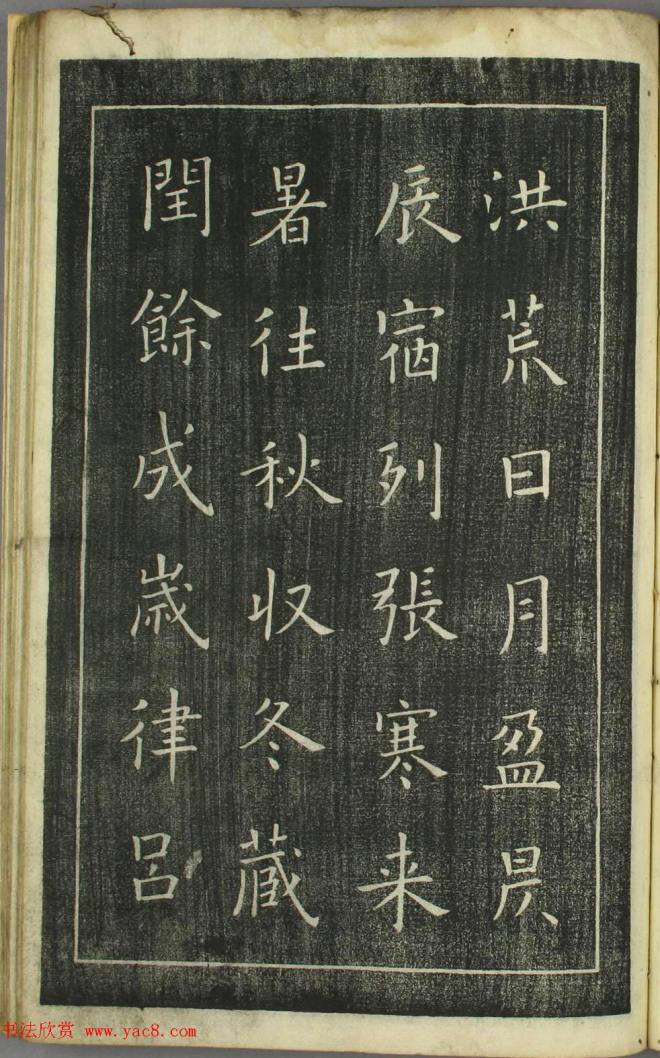 洪荒日月盈昃
辰宿列張寒来
暑往秋収冬蔵
閏餘成歲律呂
书法欣赏 www.yac8.com